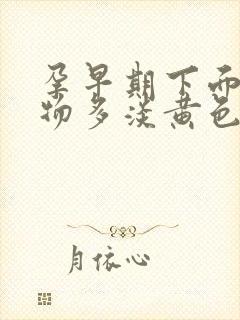 孕早期下面
物多淡黄色
月依心